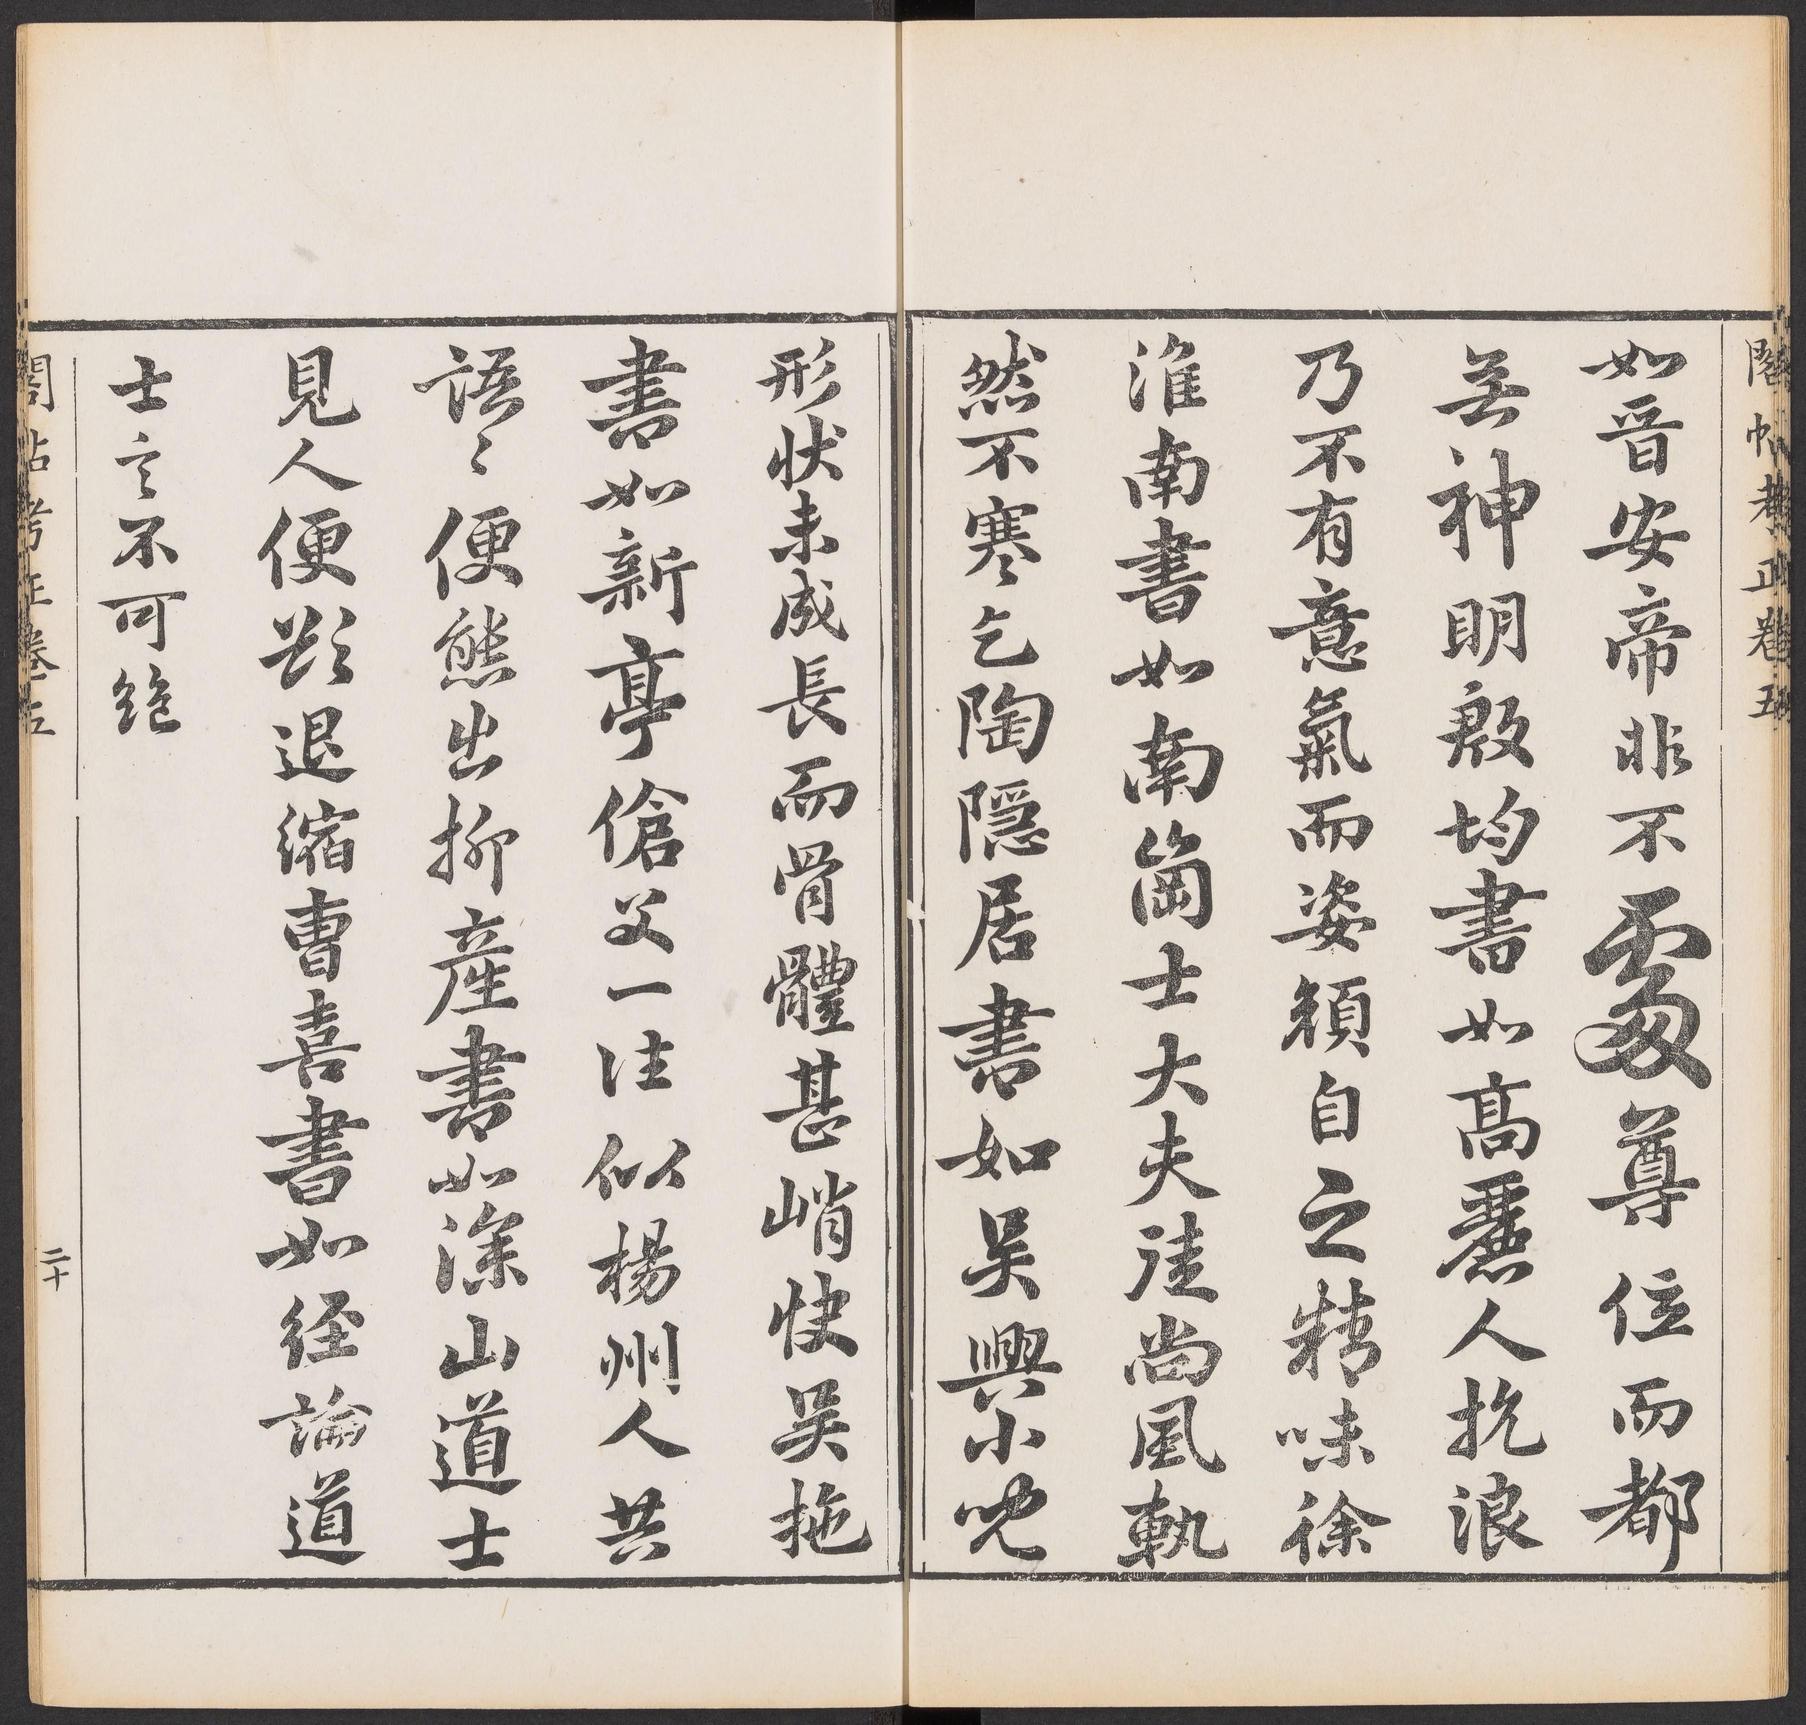 閣帖考正卷五
如晉安帝非不處尊位而都
無神明殷均書如高麗人抗浪
乃不有意氣而姿顏自之精味徐
淮南書如南崗士大夫徒尚風軌
然不寒乞陶隱居書如吳興小兒
形狀未成長而骨體甚峭快吴拖
書如新亭傖父一往似楊州人共
語々便態出柳產書如深山道士
見人便欲退縮曹喜書如経論道
士言不可絶
閣帖考正卷五
二十